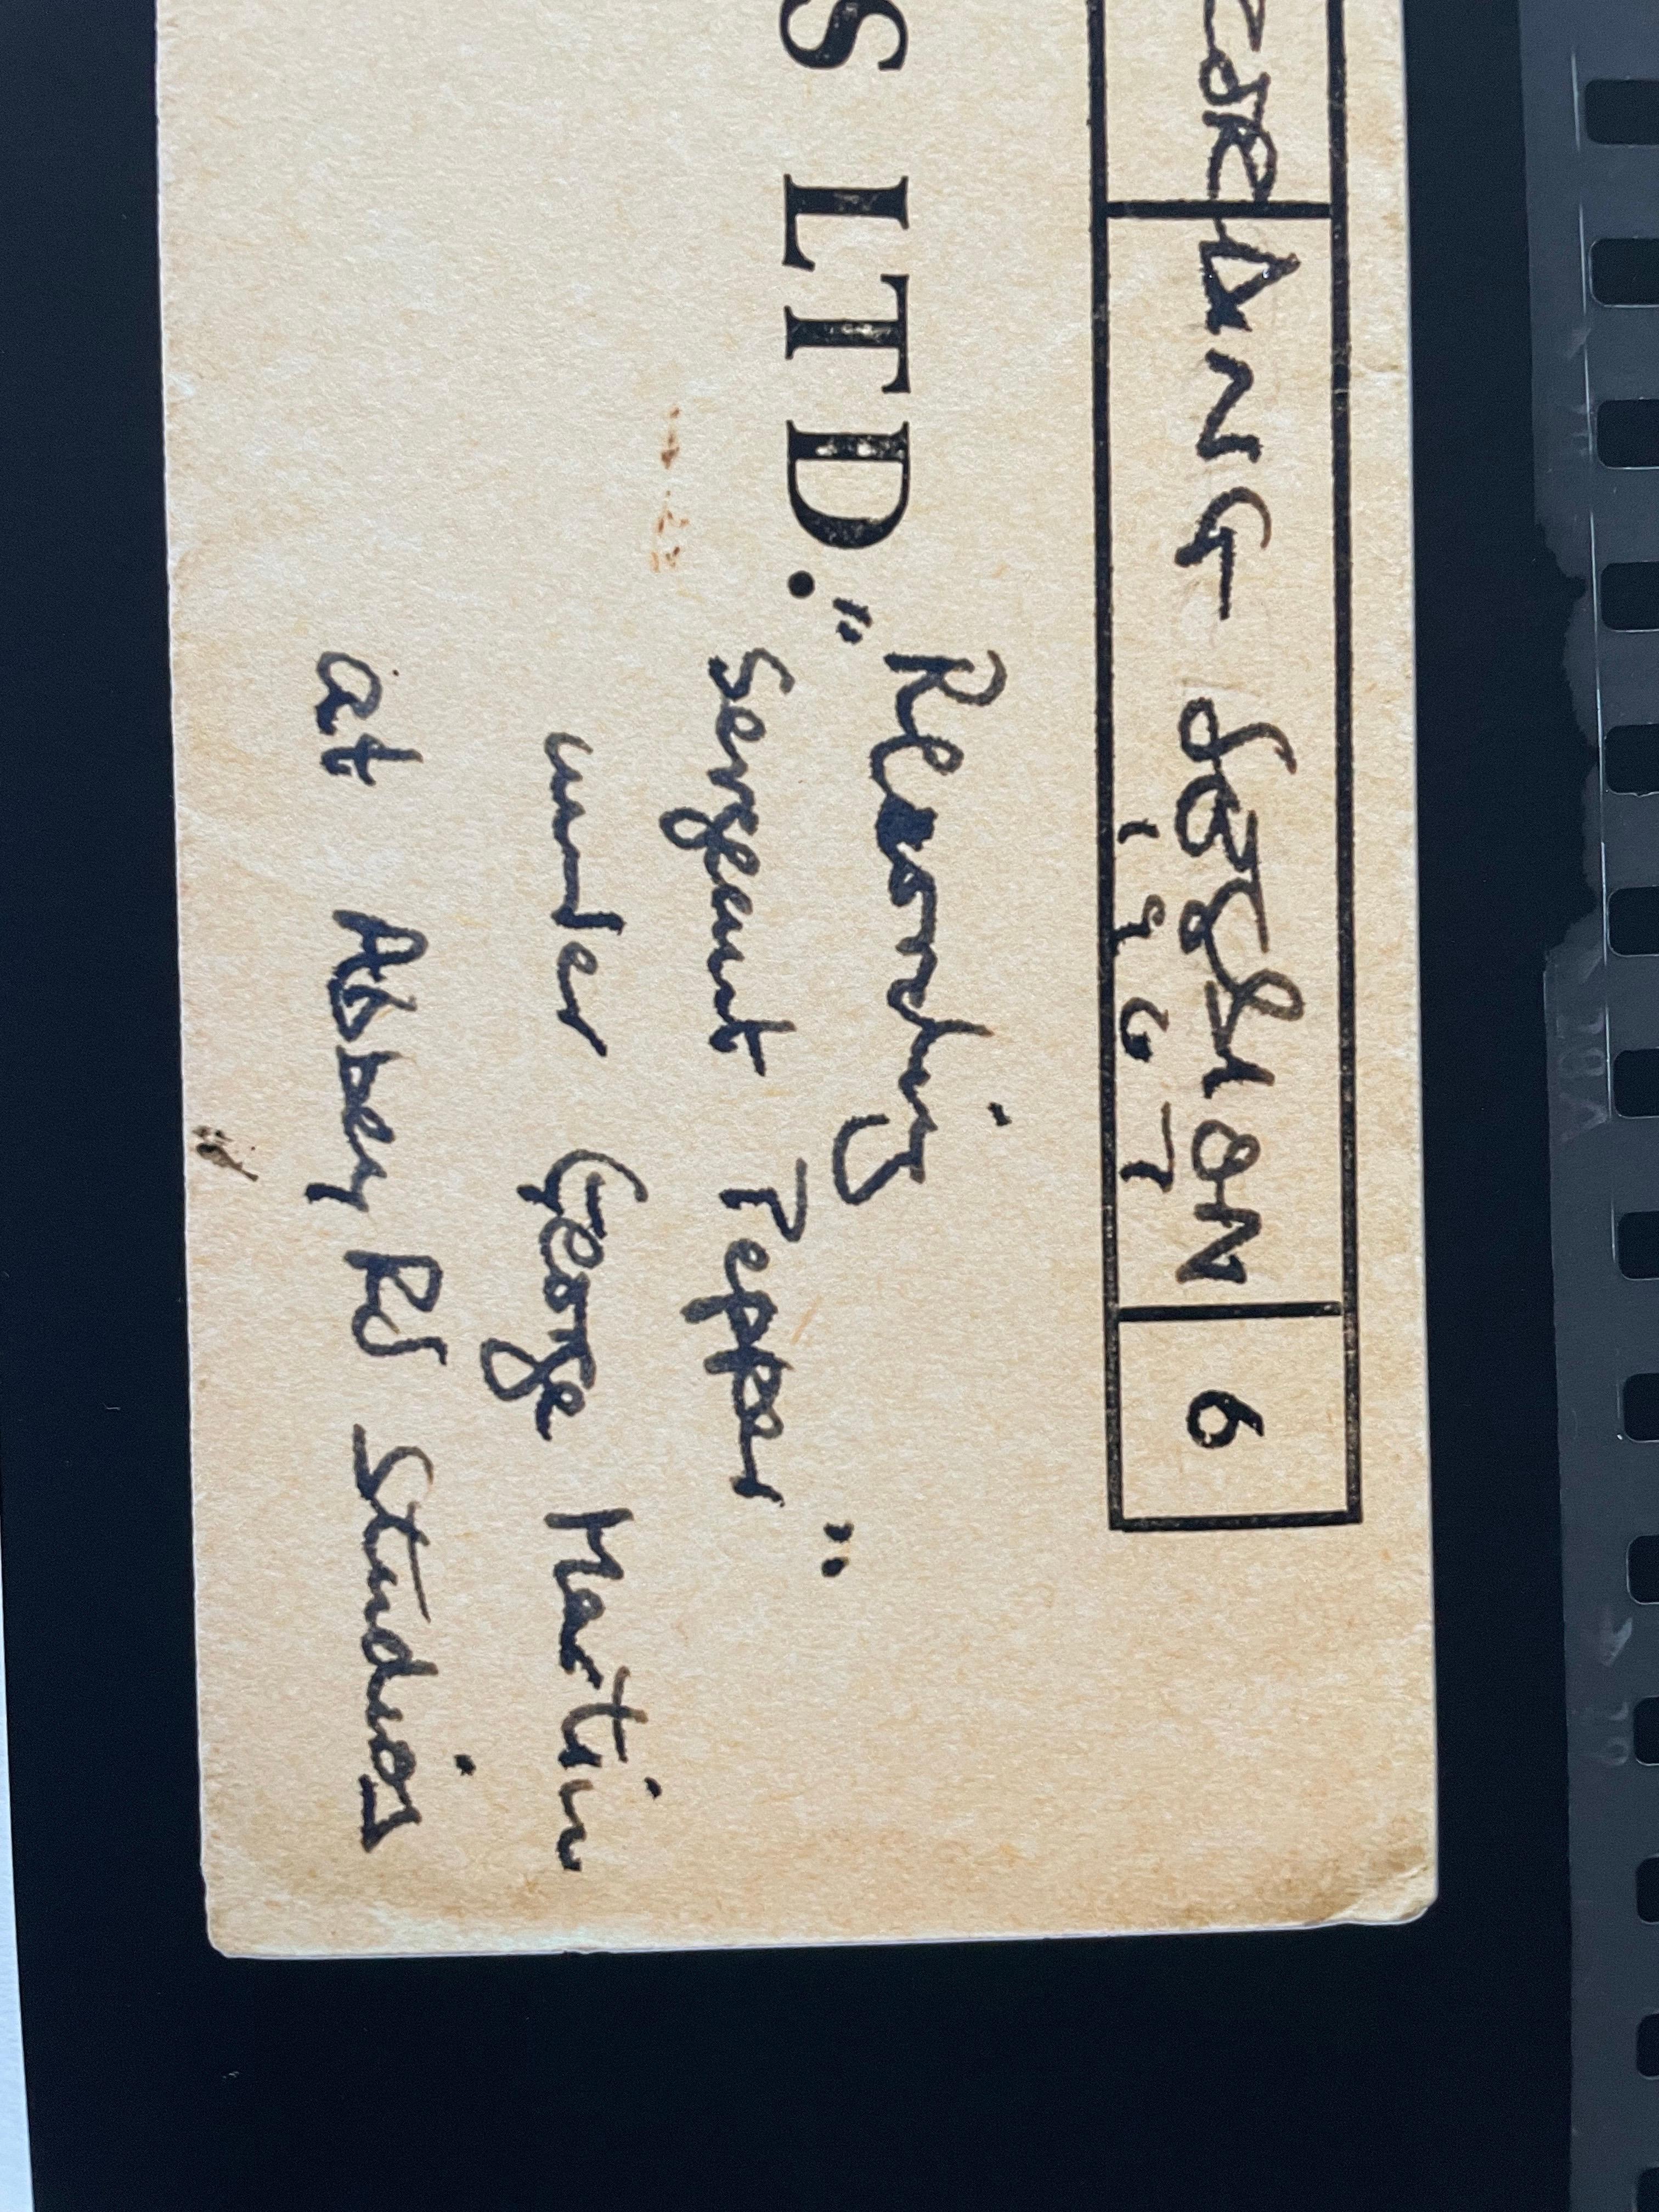 RDING SESSION 6
1967
S LTD.
Recording
"Sergeant Pepper"
under George Martin
at Abbey Rd Studios